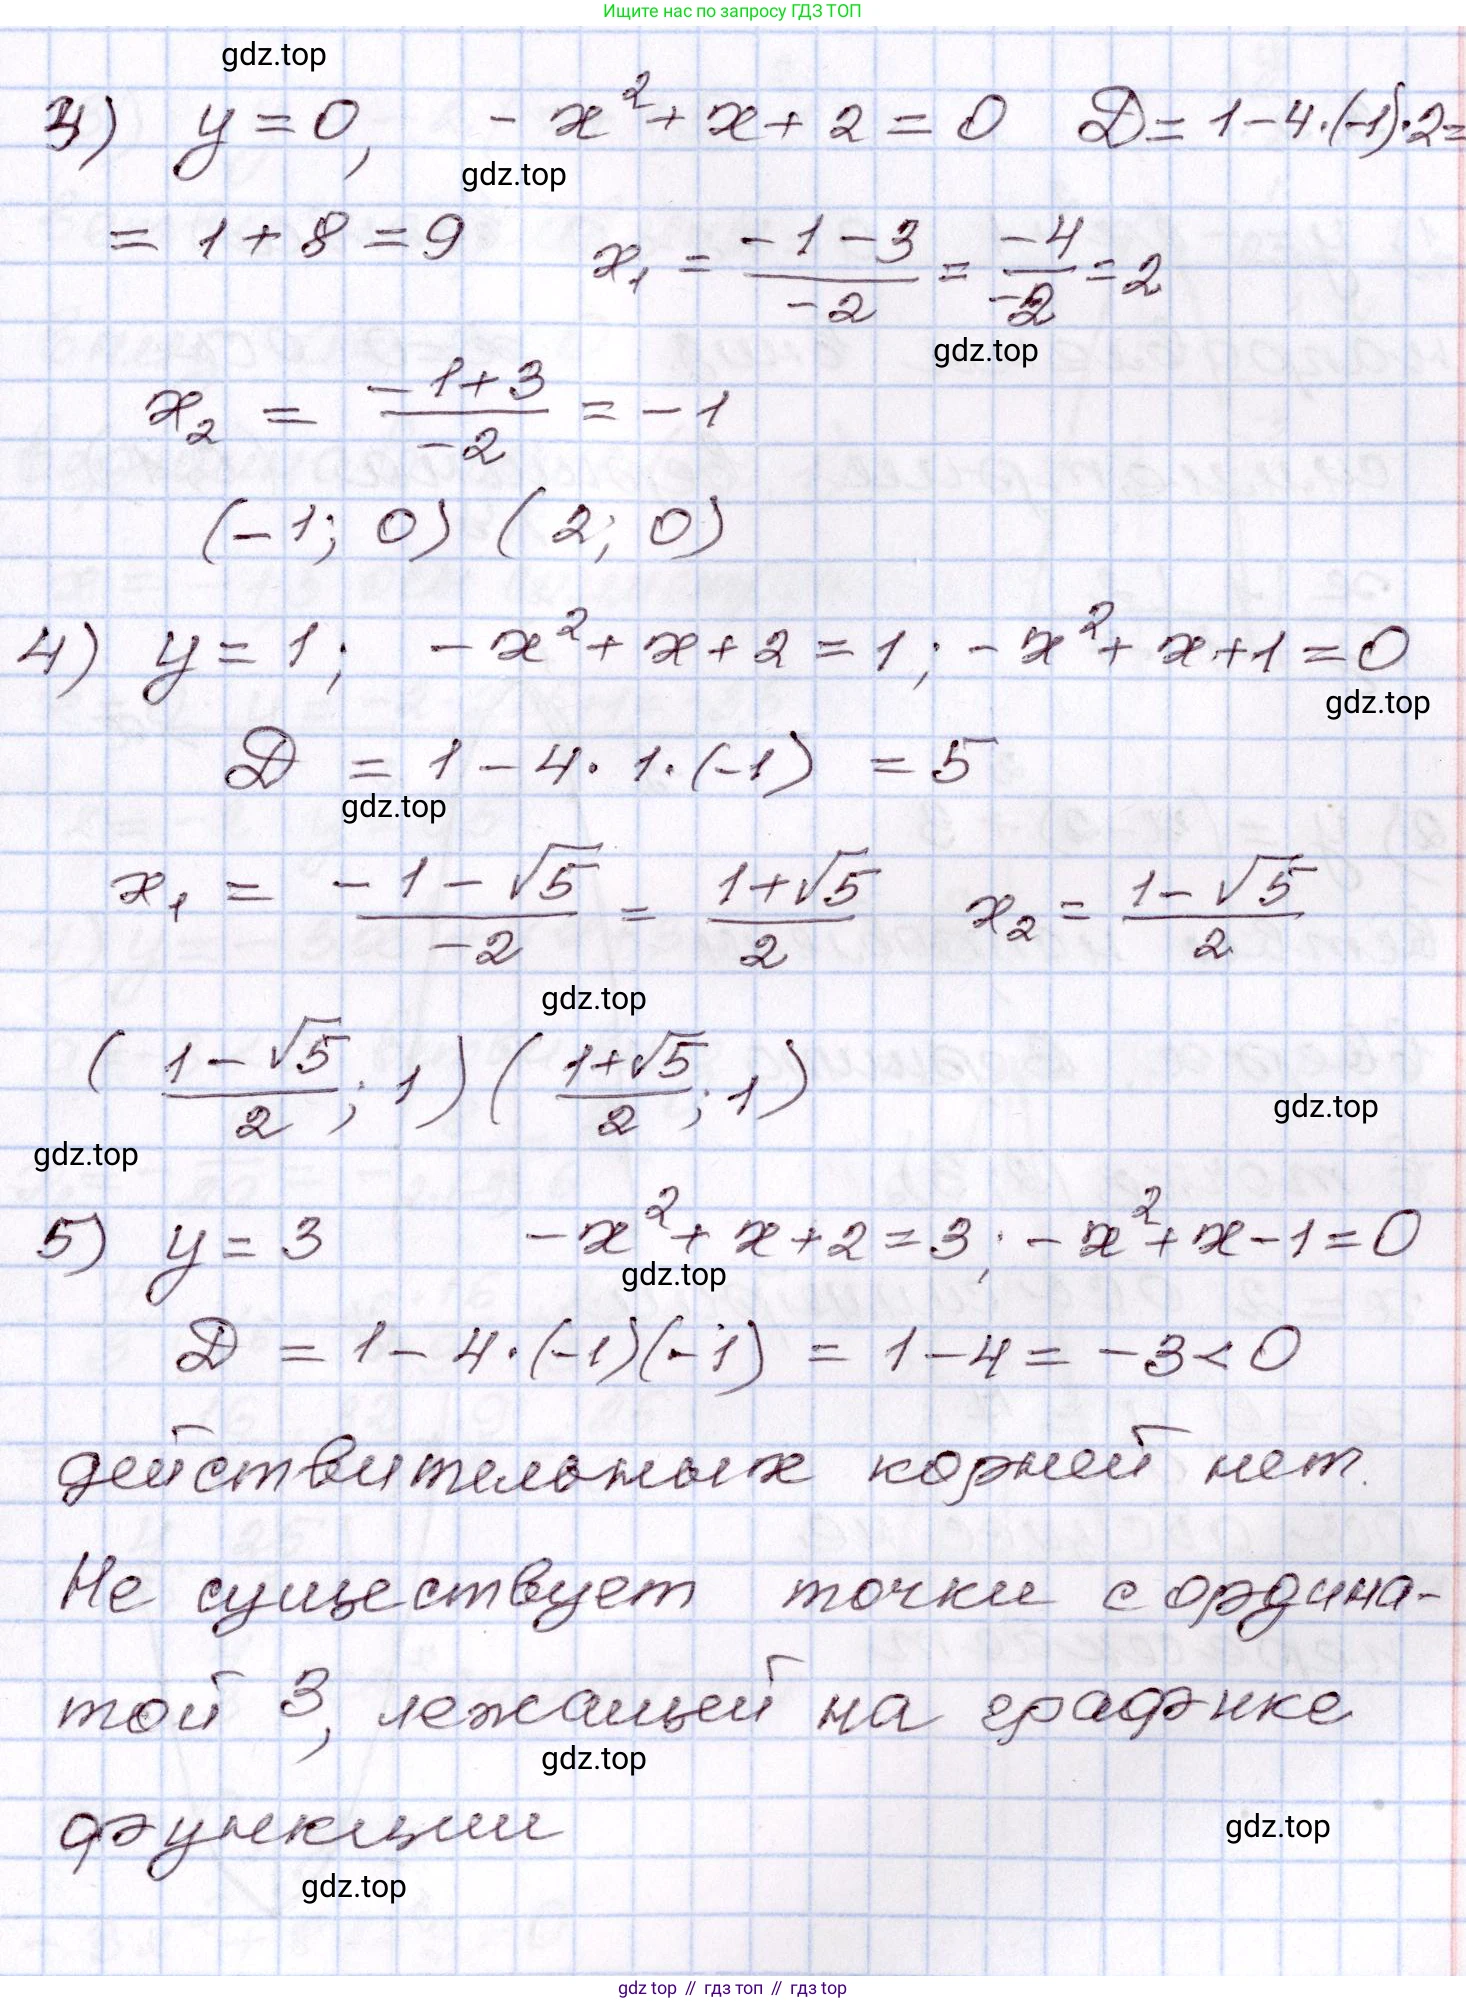 Ищите нас по запросу ГДЗ ТОП
gdz.top
3) y = 0, - x² + x + 2 = 0 D = 1 - 4·(-1)·2 =
gdz.top
= 1 + 8 = 9 x₁ = (-1-3)/(-2) = (-4)/(-2) = 2
gdz.top
x₂ = (-1+3)/(-2) = -1
(-1; 0) (2; 0)
4) y = 1; - x² + x + 2 = 1; - x² + x + 1 = 0
gdz.top
D = 1 - 4· 1·(-1) = 5
gdz.top
x₁ = (-1-√5)/(-2) = (1+√5)/2 x₂ = (1-√5)/2
gdz.top
((1-√5)/2; 1) ((1+√5)/2; 1)
gdz.top
gdz.top
5) y = 3 - x² + x + 2 = 3; - x² + x - 1 = 0
gdz.top
D = 1 - 4·(-1)(-1) = 1 - 4 = -3 < 0
действительных корней нет.
Не существует точки с ордина-
той 3, лежащей на графике
gdz.top
функции
gdz.top
gdz.top
gdz.top // гдз топ // гдз top